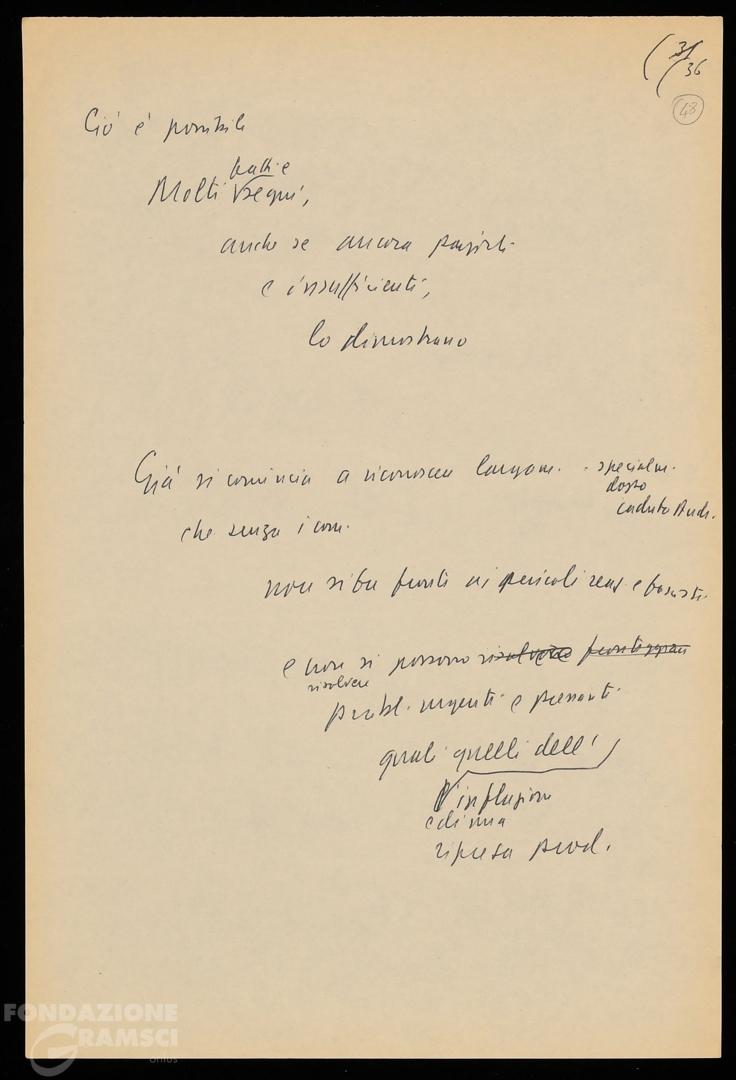 (31
(36
48
Ciò è possibile
fatti e
Molti segni,
anche se ancora parziali
e insufficienti,
lo dimostrano
Già si comincia a riconoscere largam. - specialm.
dopo
caduta Andr.
che senza i com.
non si fa fronte ai pericoli reaz. e fascisti
e non si possono risolvere fronteggiare
risolvere
probl. urgenti e pressanti
quali quelli dell'
l'inflazione
e di una
ripresa prod.
FONDAZIONE
GRAMSCI
onlus